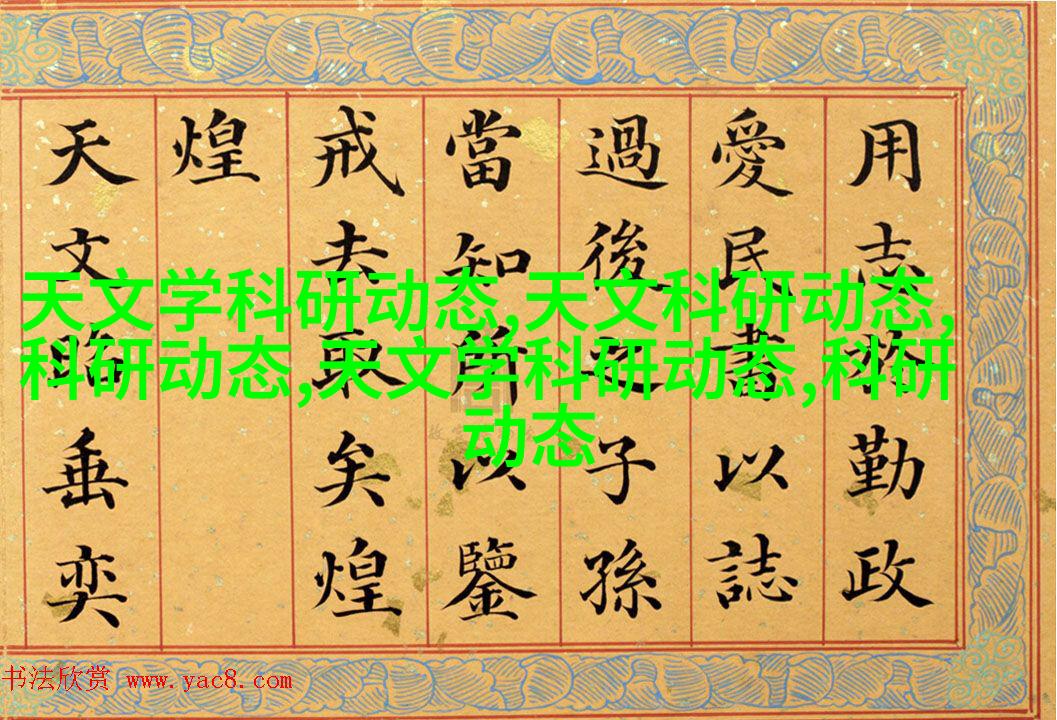 用志於勤政
愛民書以誌
過後之子孫
當知所以鑒
戒去取矣煌
煌
天文昭垂奕
天文学科研动态,天文科研动态,
科研动态,天文学科研动态,科研
动态
书法欣赏 www.yac8.com